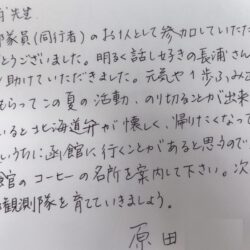 先生
隊員(同行者)のお1人として参加していただ
とうございました。明るく話し好きの長浦さん
助けていただきました。元気や1歩ふみ
もらってこの夏の活動、のり切ることが出来
いると北海道弁が懐しく、帰りたくなって
いうちに函館に行くことがあると思うので
館のコーヒーの名所を案内して下さい。次
観測隊を育てていきましょう。
原田